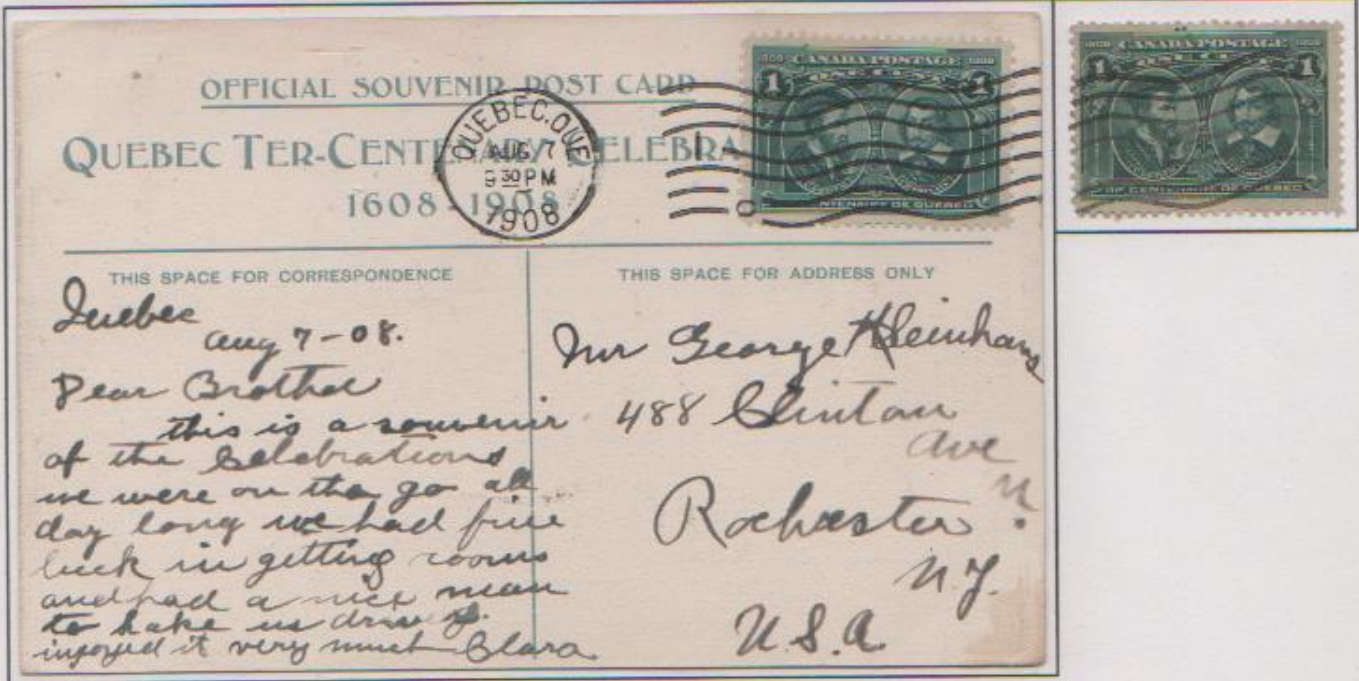 OFFICIAL SOUVENIR POST CARD
QUEBEC TER-CENTENARY CELEBRA
1608-1908
QUEBEC. QUE
AUG 7
9 30 PM
1908
1608 CANADA POSTAGE 1908
1 ONE CENT 1
NTENAIRE DE QUEBEC
1608 CANADA POSTAGE 1908
1 ONE CENT 1
CENTENAIRE DE QUEBEC
THIS SPACE FOR CORRESPONDENCE
Quebec
Aug 7-08.
Dear Brother
this is a souvenir
of the Celebrations
we were on the go all
day long we had fine
luck in getting rooms
and had a nice man
to take us
injoyed it very much Clara
THIS SPACE FOR ADDRESS ONLY
Mr George Kleinhans
488 Clinton
Ave
N.
Rochester
N.Y.
U.S.A.